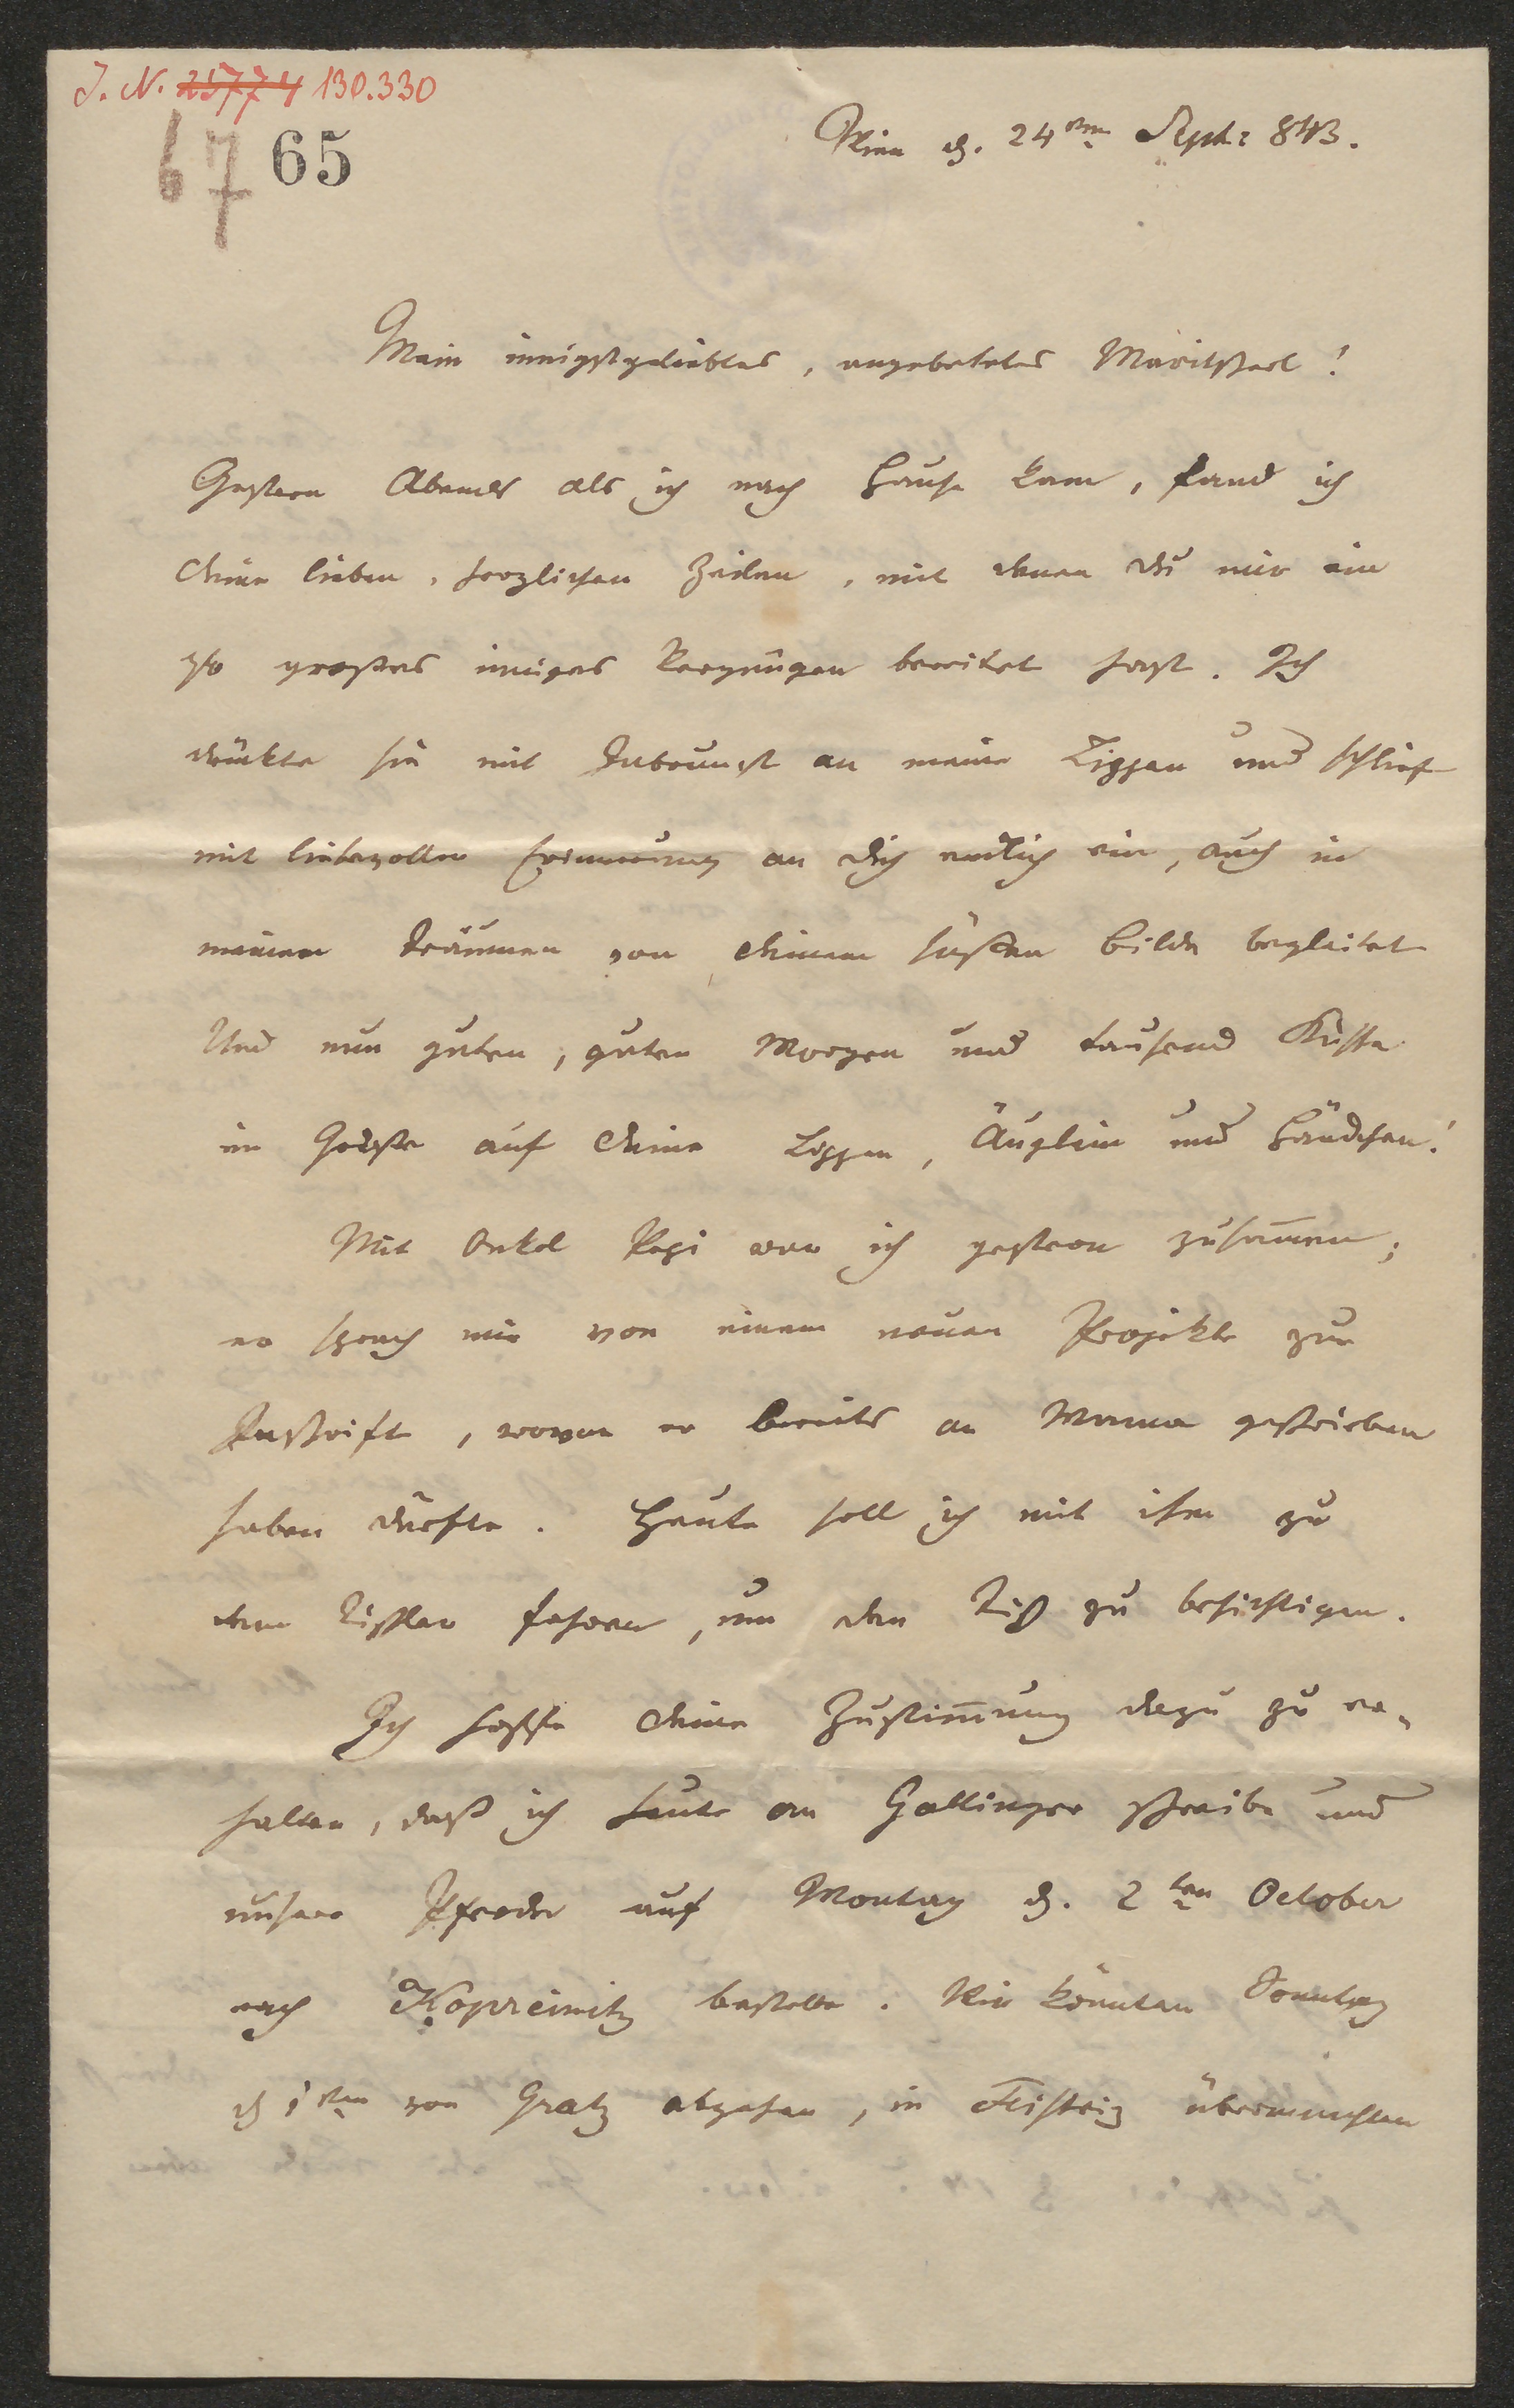 J. N. 25774 130.330
67 65
Wien d. 24ten Sept: 843.
Mein innigstgeliebtes, angebetetes Maritscherl!
Gestern Abends als ich nach Hause kam, fand ich
deine lieben, herzlichen Zeilen, mit denen du mir ein
so großes inniges Vergnügen bereitet hast. Ich
drückte sie mit Inbrunst an meine Lippen und schlief
mit liebevoller Erinnerung an dich endlich ein, auch in
meinen Träumen von deinem süßen Bilde begleitet
Und nun guten, guten Morgen und tausend Küsse
im Geiste auf deine Lippen, Äuglein und Händchen!
Mit Onkel Pepi war ich gestern zusam̅en;
er sprach mir von einem neuen Projekte zur
, wovon er bereits an Mama geschrieben
haben dürfte. Heute soll ich mit ihm zu
dem Tischler fahren, um den Riß zu besichtigen.
Ich hoffe deine Zustim̅ung dazu zu er-
halten, daß ich heute an Gallinger schreibe und
unsere Pferde auf Montag d. 2ten October
nach Kopreinitz bestelle. Wir könnten Sonntag
d 1ten von Gratz abgehen, in Feistriz übernachten